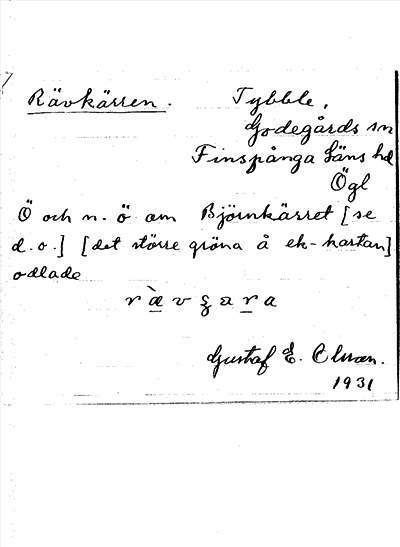 Rävkärren.
Tybble,
Godegårds sn
Finspånga läns hd
Ögl
Ö och n. ö om Björnkärret [se
d. o.] [det större gröna å ek-kartan]
odlade
r æ̀ v ʒ a r a
Gustaf E. Olsson.
1931